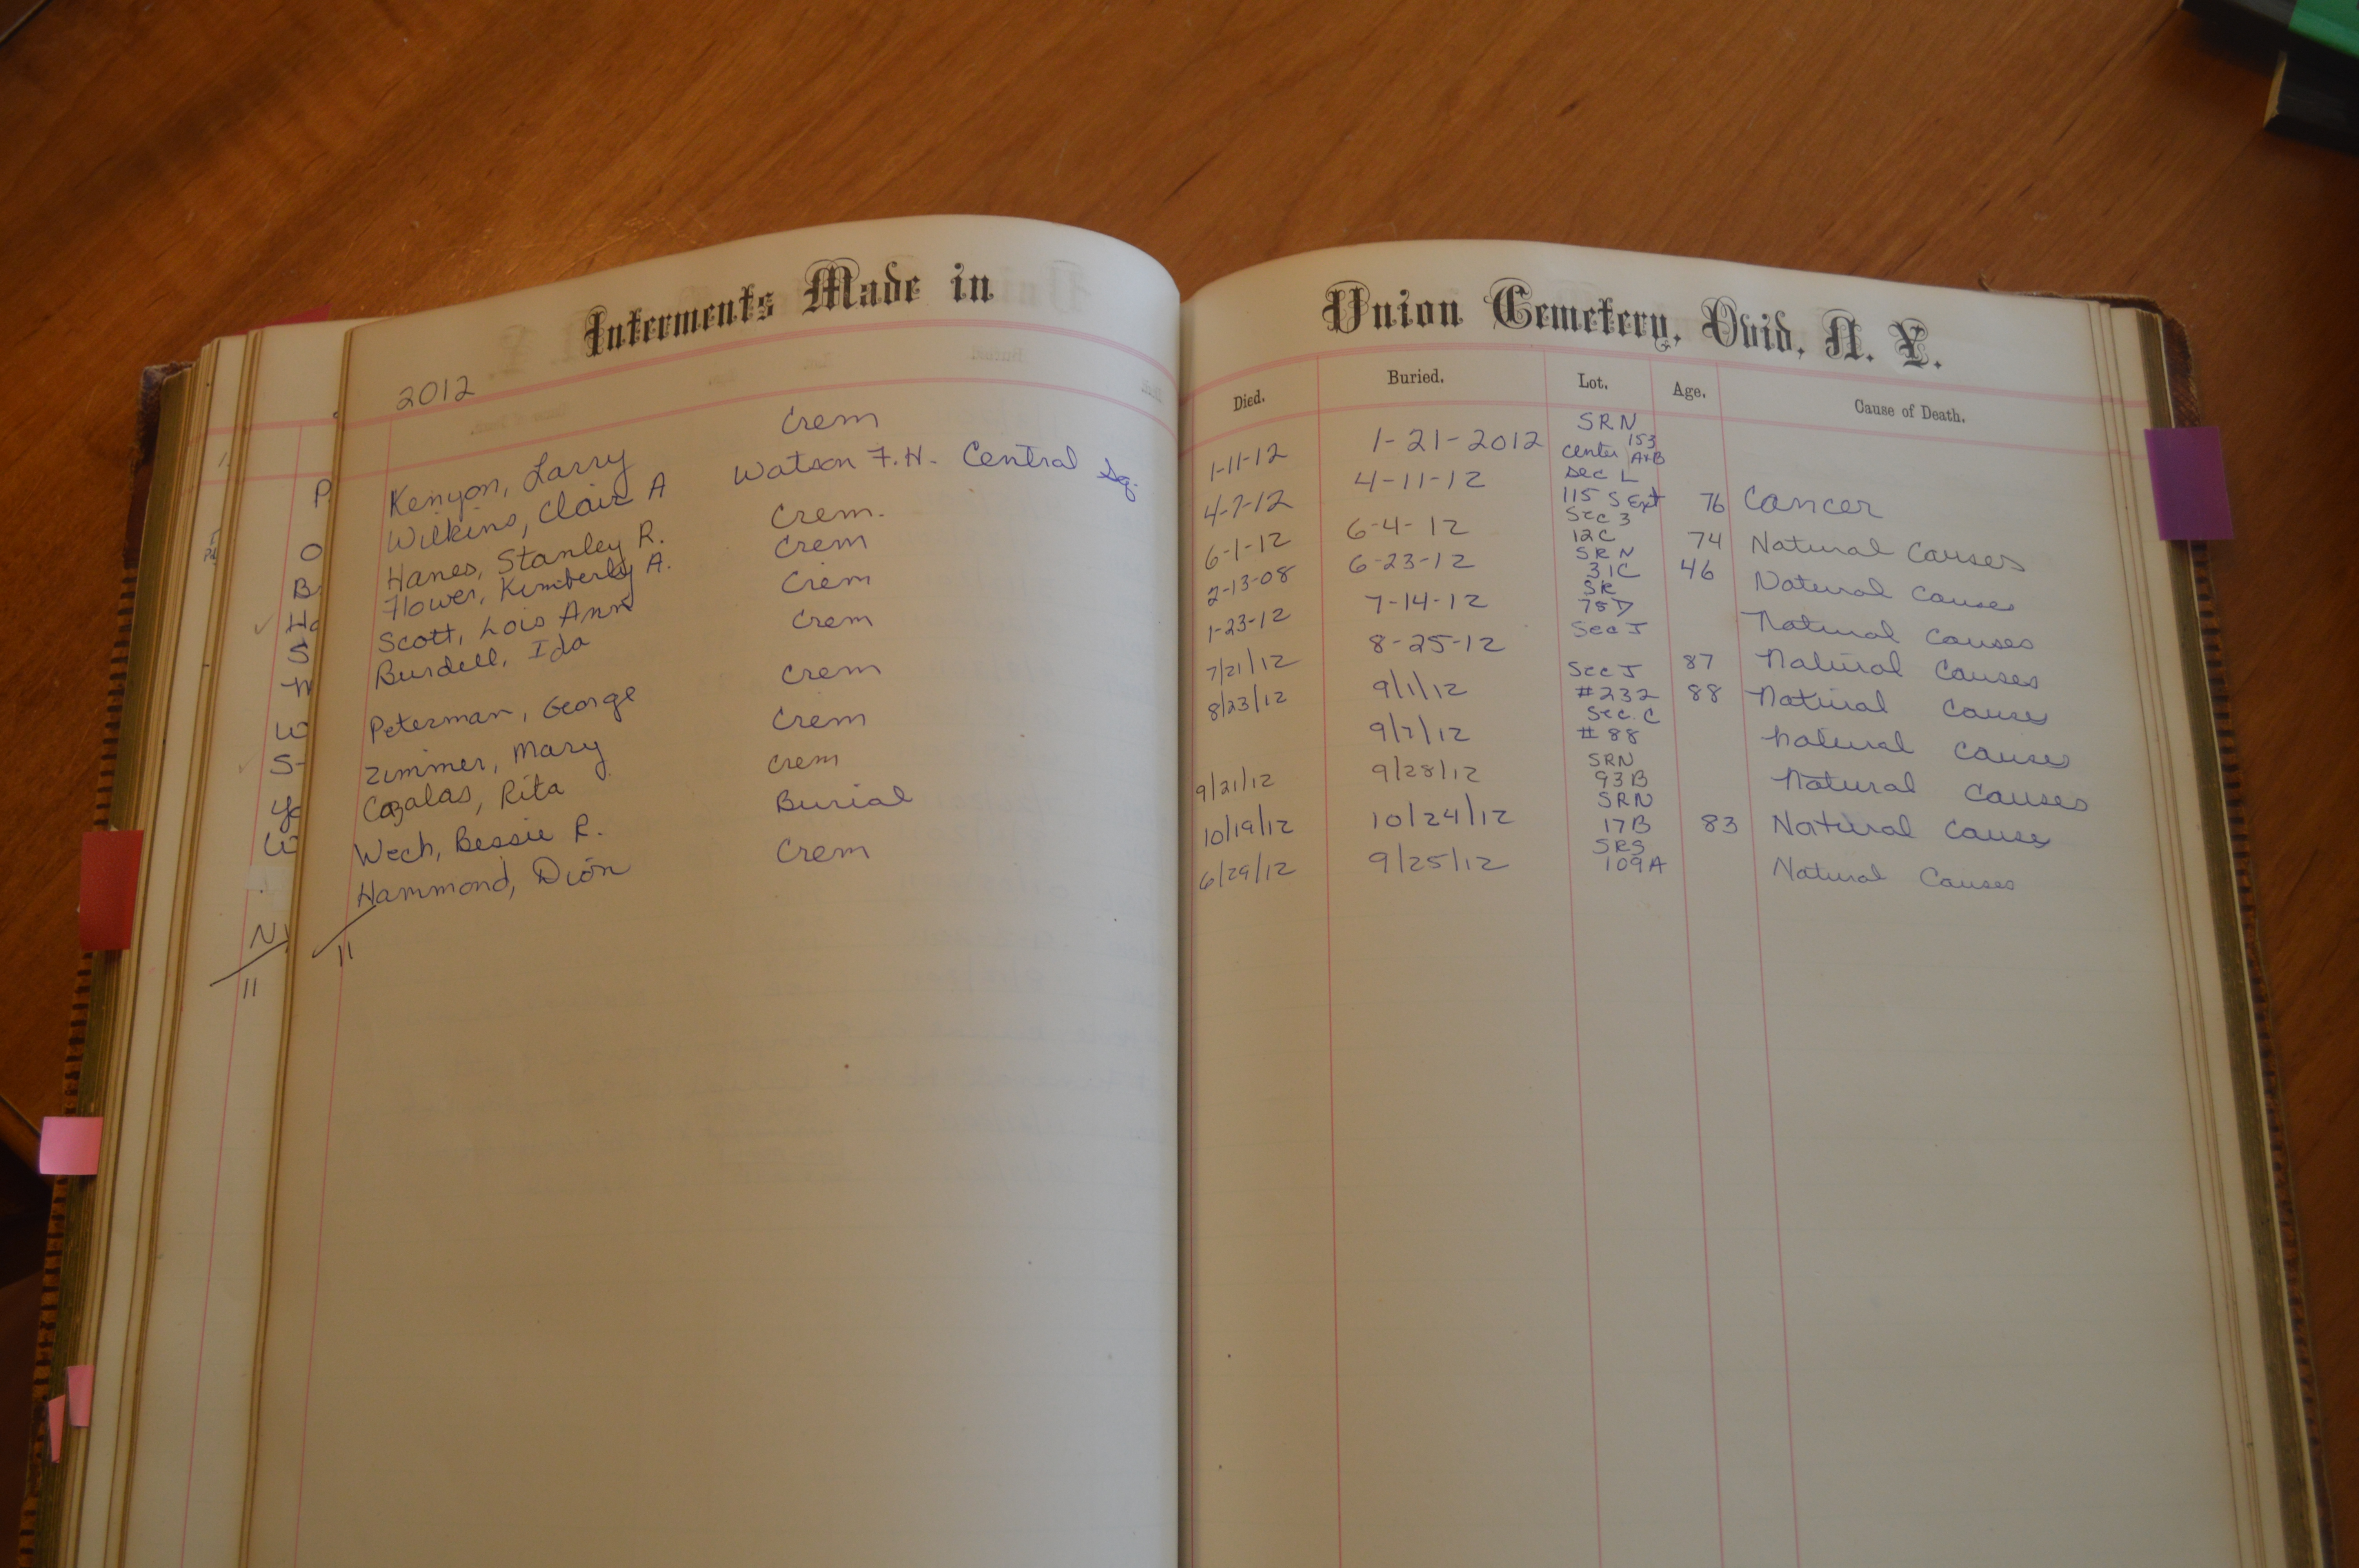 Interments Made in
Union Cemetery, Ovid, N. Y.
2012
Died. Buried. Lot. Age. Cause of Death.
Kenyon, Larry Crem 1-11-12 1-21-2012 SRN
153
Center A+B
Wilkins, Clair A Watson F.H. Central Sq. 4-7-12 4-11-12 Sec L
115 S Ext 76 Cancer
Hanes, Stanley R. Crem. 6-1-12 6-4-12 Sec 3
12C 74 Natural Causes
Flower, Kimberly A. Crem 2-13-08 6-23-12 SRN
31C 46 Natural Causes
Scott, Lois Ann Crem 1-23-12 7-14-12 SR
75D Natural Causes
Burdell, Ida Crem 7/21/12 8-25-12 Sec J 87 Natural Causes
Peterman, George Crem 8/23/12 9/1/12 Sec J
#232 88 Natural Causes
Zimmer, Mary Crem 9/7/12 Sec. C
#88 Natural Causes
Cazalas, Rita Crem 9/21/12 9/28/12 SRN
93B Natural Causes
Wech, Bessie R. Burial 10/19/12 10/24/12 SRN
17B 83 Natural Causes
Hammond, Dion Crem 6/29/12 9/25/12 SRS
109A Natural Causes
11
P
O
B
Ha
S
W
S
Ya
W
N
11